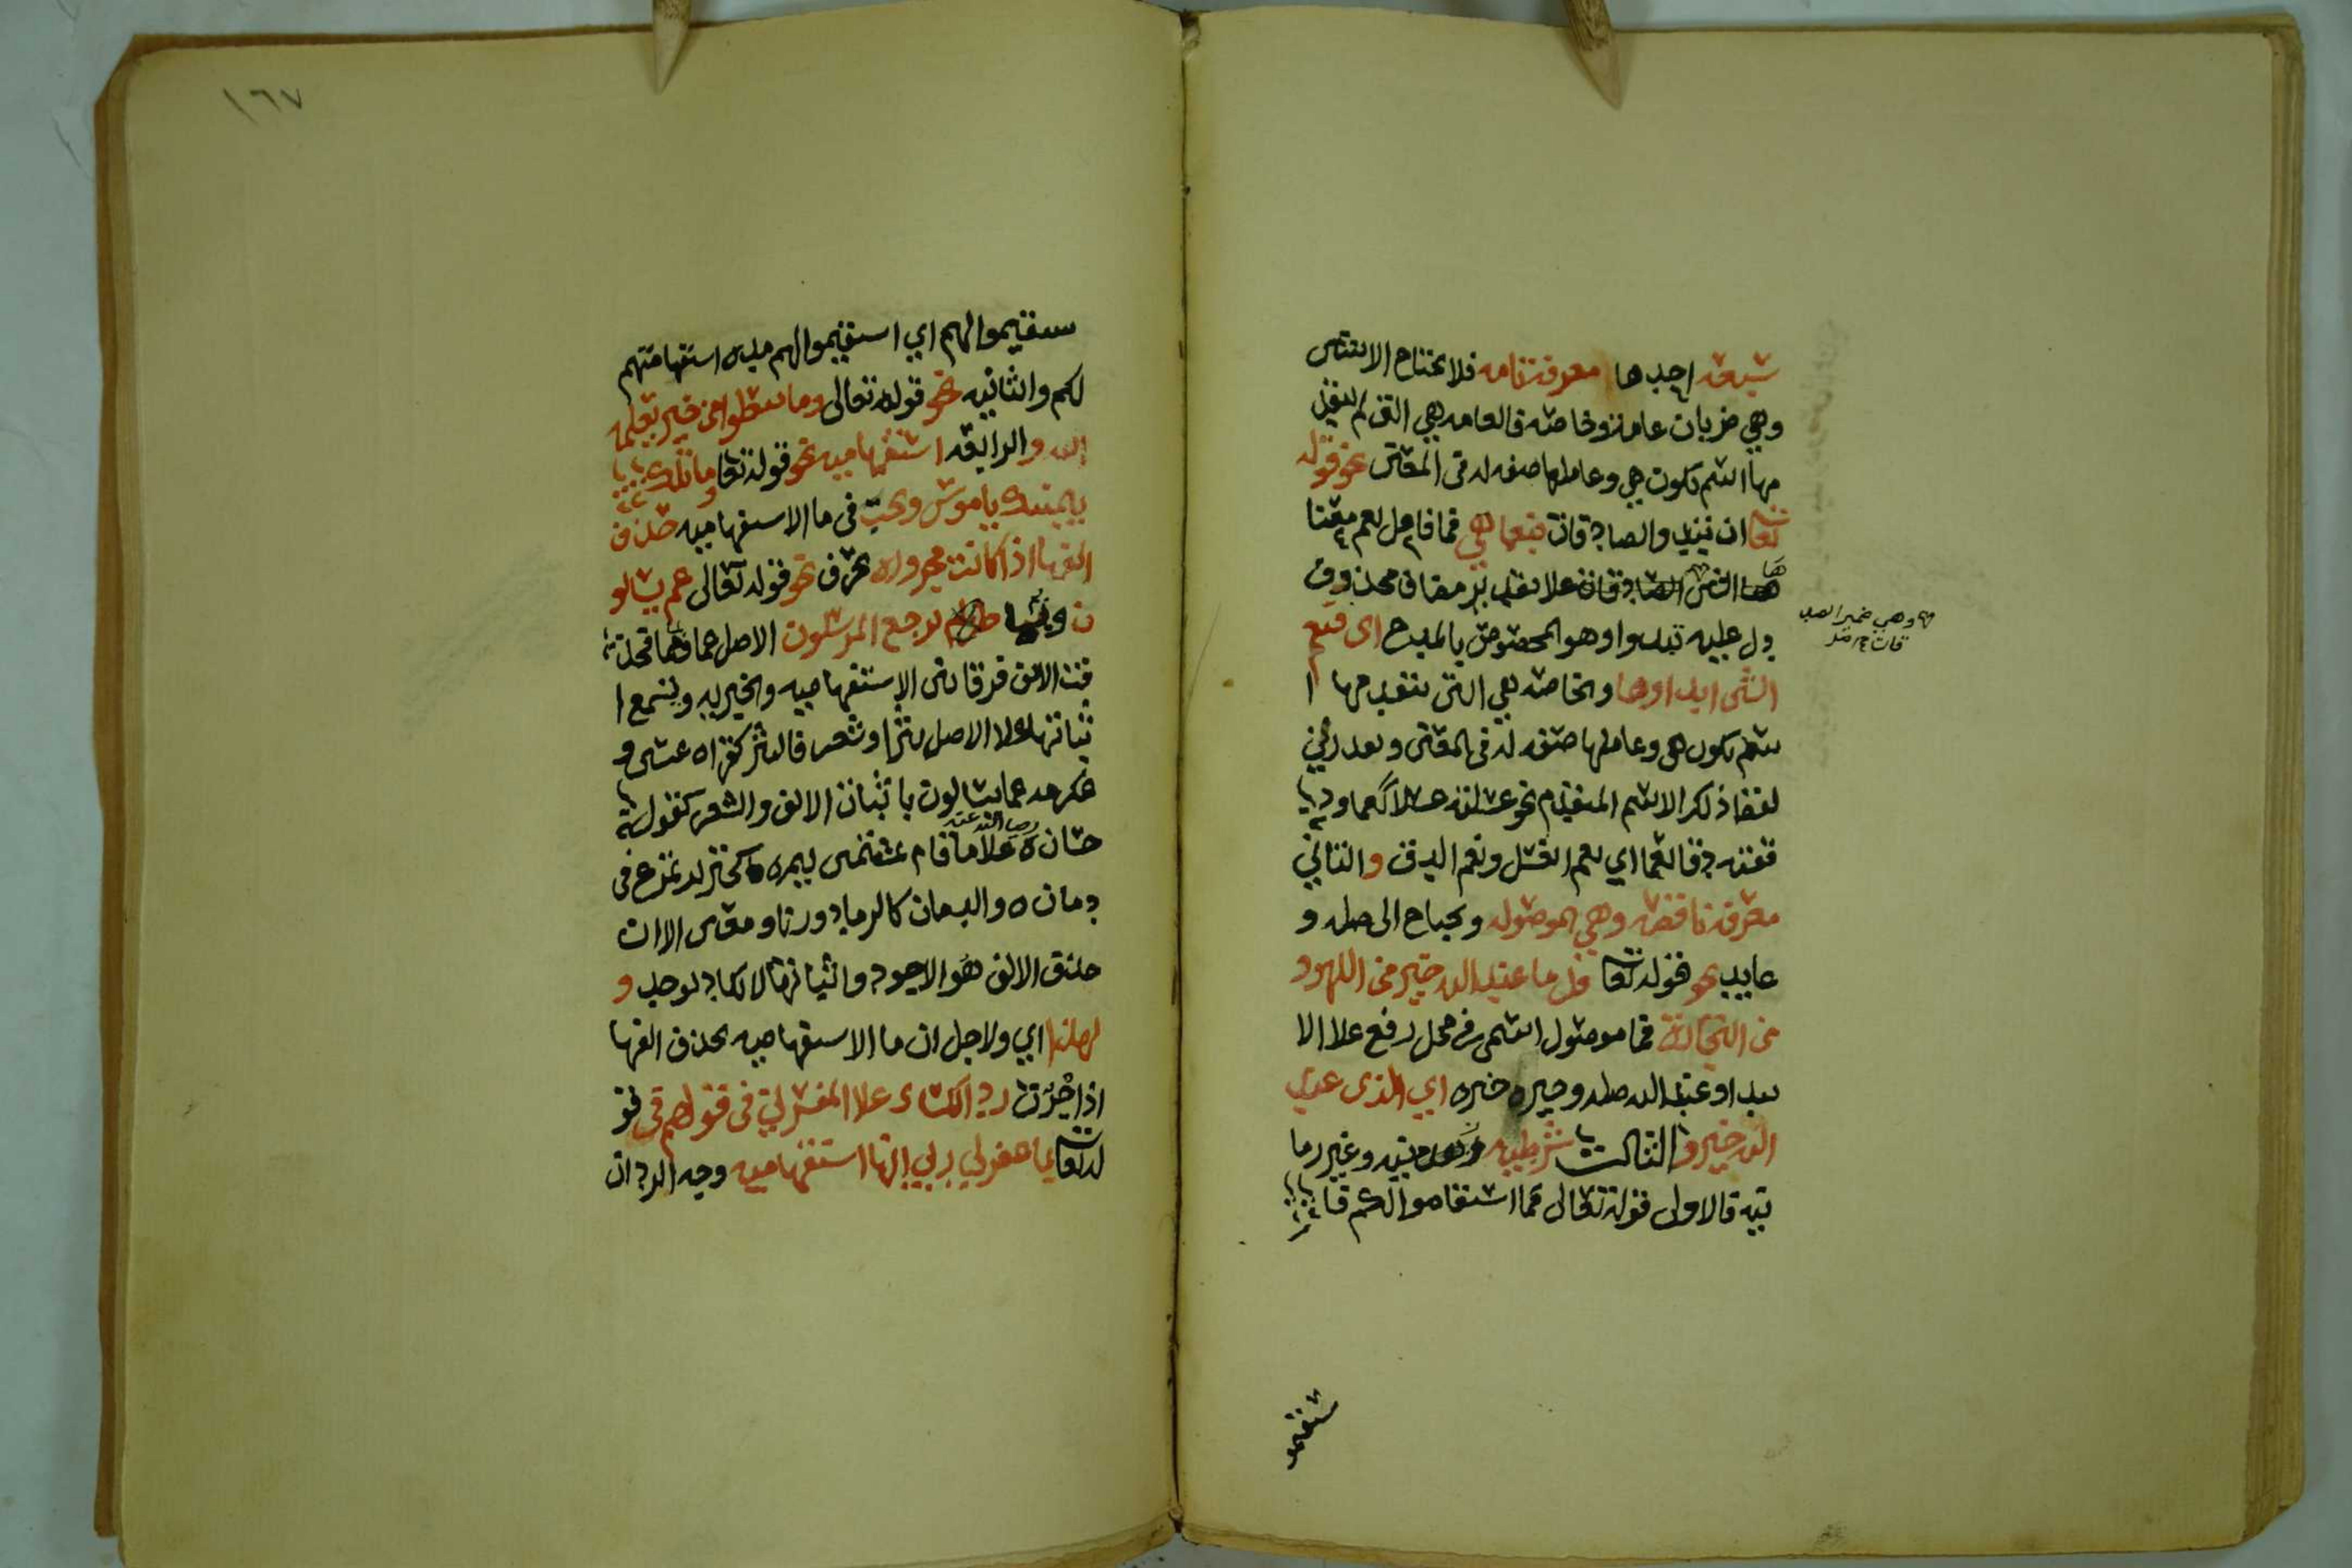 سبعه احدها معرفة تامه فلا تحتاج الا شئ
وهي ضربان عامة وخاصه فالعامه هي التي لم يتقد
مها اسم تكون هي وعاملها صفه له في المعنى نحو قوله
تعا ان تبدوا الصدقات فنعما هي فما فاعل نعم معنا
ها الشي وهي ضمير الصد
قات على تقدير مضاف محذوف
دل عليه تبدوا وهو المخصوص بالمدح اي فنعم
الشي ابداوها والخاصه هي التي تتقدمها ا
سم تكون هي وعاملها صفه له في المعنى وتقدر من
لفظ ذلك الاسم المتقدم نحو غسلته غسلا نعما و
دققته دقا نعما اي نعم الغسل ونعم الدق والثاني
معرفة ناقصه وهي الموصوله وتحتاج الى صله و
عايد نحو قوله تعا قل ما عند الله خير من اللهو و
من التجارة فما موصول اسمي في محل رفع علا الا
بتدا وعند الله صله وخير خبره اي الذي عند
الله خير والثالث شرطيه زمانيه وغير زما
نيه فالاول قوله تعالى فما استقاموا لكم فا
ستقيمو
١٦٧
ستقيموا لهم اي استقيموا لهم مده استقامتهم
لكم والثانيه نحو قوله تعالى وما تفعلوا من خير يعلمه
الله والرابعه استفهاميه نحو قوله تعا وما تلك
بيمينك ياموسى ويجب في ما الاستفهاميه حذف
الفها اذا كانت مجروره بحرف نحو قوله تعالى عم يتسالو
ن وبم يرجع المرسلون الاصل عما وبما فحذ
فت الالف فرقا بين الاستفهاميه والخبريه ويسمع ا
ثباتها علا الاصل نثرا وشعرا فالنثر كقراه عيسى و
عكرمه عما يتسالون باثبات الالف والشعر كقول
حسان رضي الله عنه علاما قام يشتمني لييم كخنزير تمرغ في
دمان والدمان كالرماد وزنا ومعنى الا ان
حذف الالف هو الاجود واثباتها لا يكاد يوجد و
لهذا اي ولاجل ان ما الاستفهاميه تحذف الفها
اذا جرت رد الكسائ علا المفسرين في قولهم في قو
له تعا بما غفر لي ربي انها استفهاميه وجه الرد ان